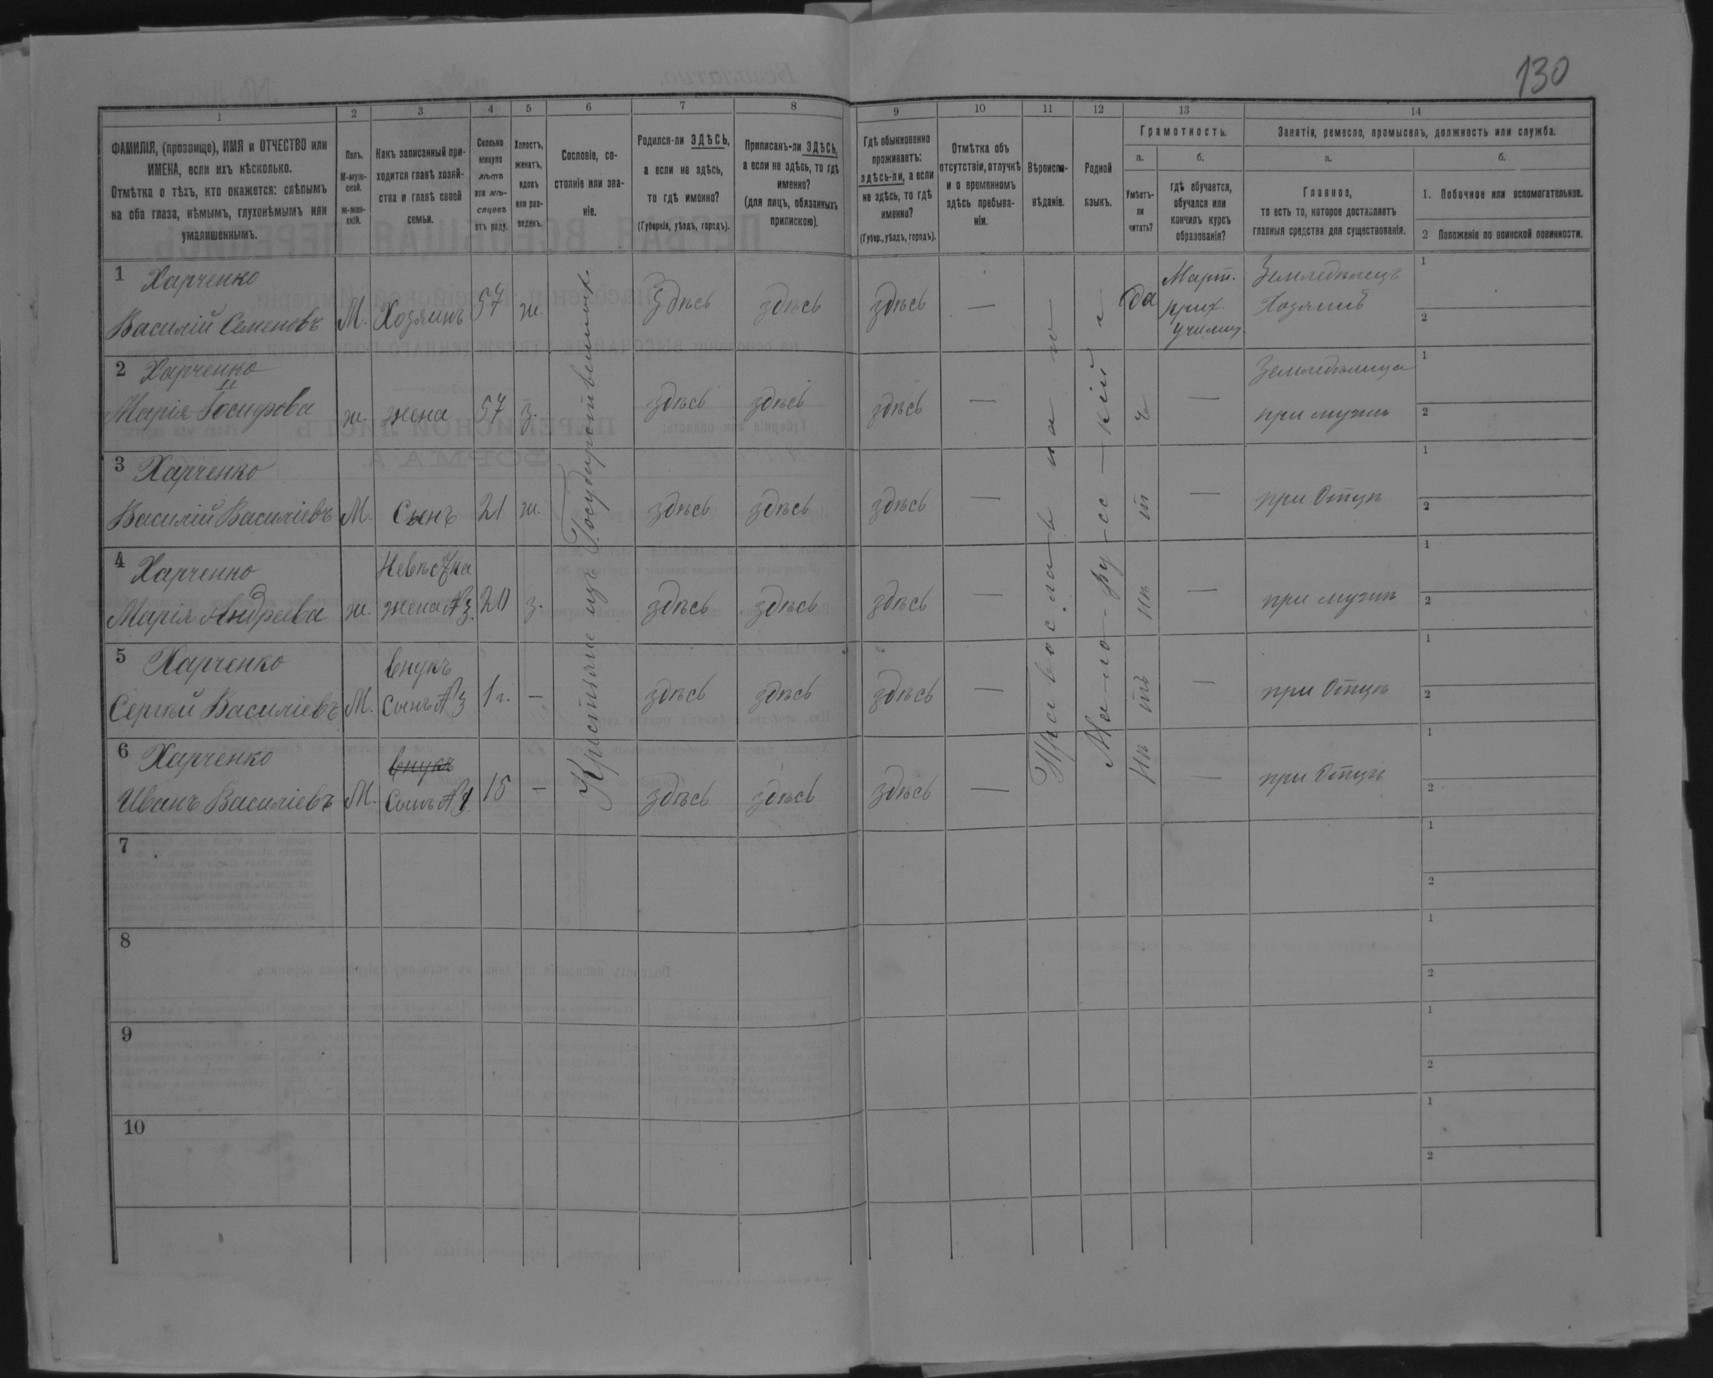 130
1 2 3 4 5 6 7 8 9 10 11 12 13 14
ФАМИЛІЯ, (прозвище), ИМЯ и ОТЧЕСТВО или
ИМЕНА, если ихъ нѣсколько.
Отмѣтка о тѣхъ, кто окажется: слѣпымъ
на оба глаза, нѣмымъ, глухонѣмымъ или
умалишеннымъ.
Полъ.
М-мужской.
ж-женскій.
Какъ записанный при-
ходится главѣ хозяй-
ства и главѣ своей
семьи.
Сколько
минуло
лѣтъ
или мѣ-
сяцевъ
отъ роду.
Холостъ,
женатъ,
вдовъ
или раз-
веденъ.
Сословіе, со-
стояніе или зва-
ніе.
Родился-ли ЗДѢСЬ,
а если не здѣсь,
то гдѣ именно?
(Губернія, уѣздъ, городъ).
Приписанъ-ли ЗДѢСЬ,
а если не здѣсь, то гдѣ
именно?
(для лицъ, обязанныхъ
припискою).
Гдѣ обыкновенно
проживаетъ:
здѣсь-ли, а если
не здѣсь, то гдѣ
именно?
(Губер., уѣздъ, городъ).
Отмѣтка объ
отсутствіи, отлучкѣ
и о временномъ
здѣсь пребыва-
ніи.
Вѣроиспо-
вѣданіе.
Родной
языкъ.
Грамотность.
а.
Умѣетъ-
ли
читать?
б.
гдѣ обучается,
обучался или
кончилъ курсъ
образованія?
Занятія, ремесло, промыселъ, должность или служба.
а.
Главное,
то есть то, которое доставляетъ
главныя средства для существованія.
б.
1. Побочное или вспомогательное.
2 Положеніе по воинской повинности.
Крестьяне изъ Государственныхъ
Православная
Мало-русс-кій
1 Харченко
Василій Семеновъ М. Хозяинъ 57 ж. Здѣсь здѣсь здѣсь — да Март. прих. училищ. Земледѣлецъ Хозяинъ 1 2
2 Харченко
Марія Іосифова ж. жена 57 з. здѣсь здѣсь здѣсь — — Земледѣлица при мужѣ 1 2
3 Харченко
Василій Василіевъ М. Сынъ 21 ж. здѣсь здѣсь здѣсь — — при Отцѣ 1 2
4 Харченко
Марія Андреева ж. Невѣстка жена №3. 20 з. здѣсь здѣсь здѣсь — нѣ — при мужѣ 1 2
5 Харченко
Сергѣй Василіевъ М. внукъ Сынъ №3 1 г. — здѣсь здѣсь здѣсь — тъ — при Отцѣ 1 2
6 Харченко
Иванъ Василіевъ М. внукъ Сынъ №1. 15 — здѣсь здѣсь здѣсь — Нѣ — при Отцѣ 1 2
7 1 2
8 1 2
9 1 2
10 1 2